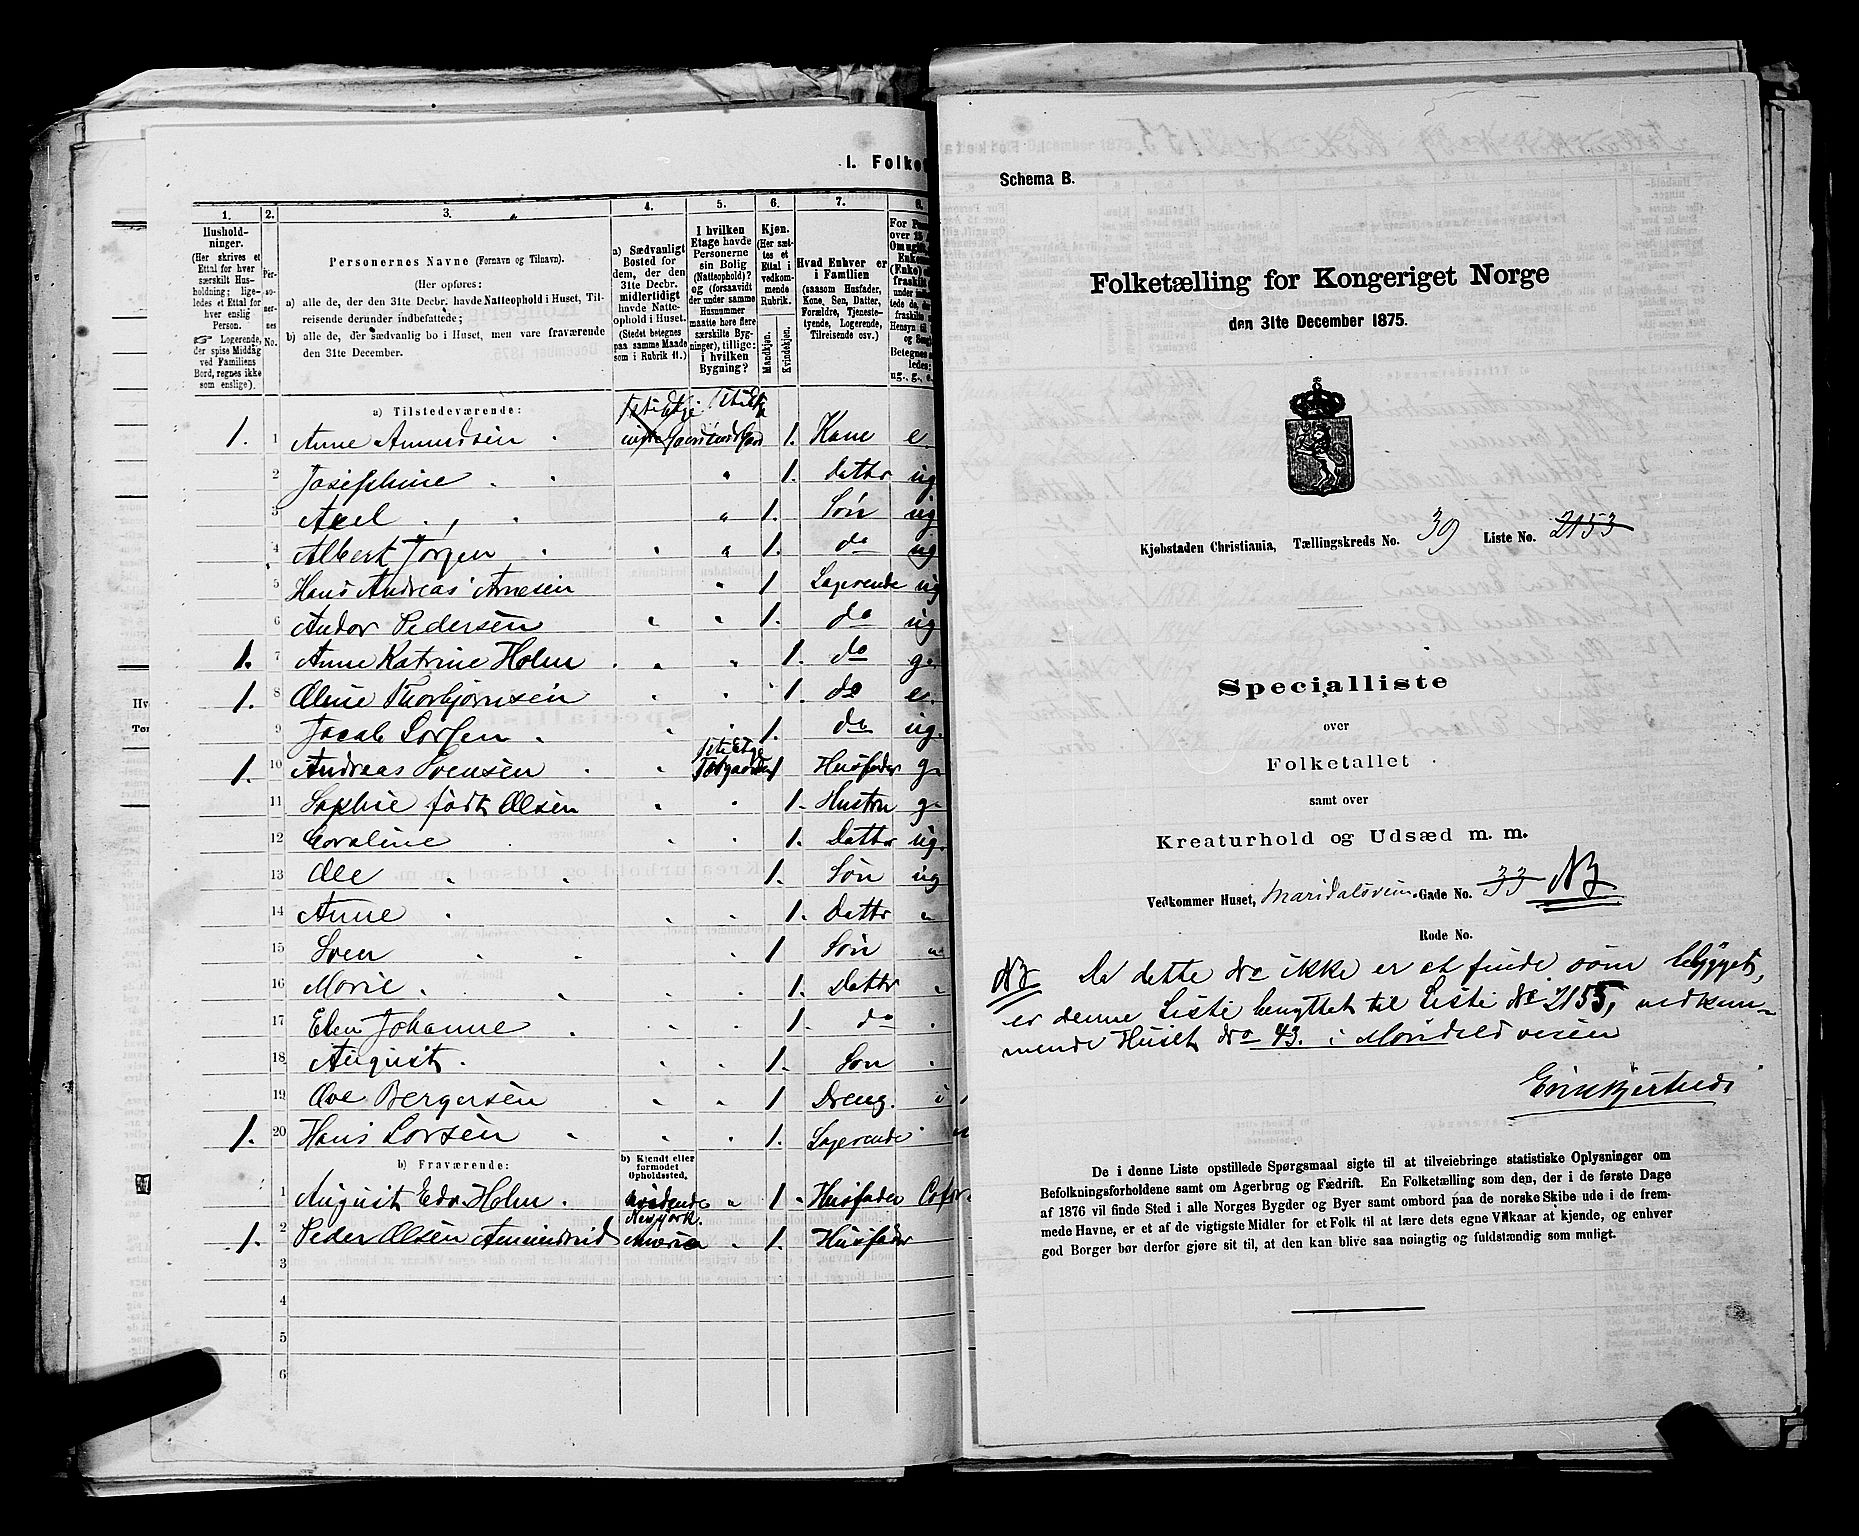 I. Folket
1. 2. 3. 4. 5. 6. 7. 8.
Hushold-
ninger.
(Her skrives et
Ettal for hver
særskilt Hus-
holdning; lige-
ledes et Ettal for
hver enslig
Person.
☞ Logerende,
der spise Middag
ved Familiens
Bord, regnes ikke
som enslige).
Per-
so-
ner-
nes
No.
Personernes Navne (Fornavn og Tilnavn).
(Her opføres:
a) alle de, der den 31te Decbr. havde Natteophold i Huset, Til-
reisende derunder indbefattede;
b) alle de, der sædvanlig bo i Huset, men vare fraværende
den 31te December.
a) Sædvanligt
Bosted for
dem, der den
31te Decbr.
midlertidigt
havde Natte-
ophold i Huset.
(Stedet betegnes
paa samme Maade
som i Rubrik 11.)
I hvilken
Etage havde
Personerne
sin Bolig
(Natteophold)?
og (forsaavidt
der under samme
Husnummer
maatte høre flere
særskilte Byg-
ninger), tillige:
i hvilken
Bygning?
Kjøn.
(Her sæt-
tes et
Ettal i
vedkom-
mende
Rubrik.
Mandkjøn.
Kvindekjøn.
Hvad Enhver er
i Familien
(saasom Husfader,
Kone, Søn, Datter,
Forældre, Tjeneste-
tyende, Logerende,
Tilreisende osv.)
a) Tilstedeværende:
1. 1 Anne Amundsen 1. Kone e.
2 Josephine " 1. Datter ug
3 Axel " 1. Søn ug
4 Albert Jørgen " " 1. do ug
5 Hans Andreas Arnesen " 1 Logerende ug
6 Andor Pedersen " " 1. do ug
1. 7 Anne Katrine Holm " " 1. do g.
1. 8 Oline Thorbjørnsen " " 1. do e.
Jacob Larsen " " 1. do ug.
1. 10 Andreas Svensen " 1 Husfader g.
11 Sophie født Olsen " " 1. Hustru g.
12 Coraline " " 1. Datter ug.
13 Ole " " 1. Søn ug
14 Anne " " 1. Datter "
15 Sven " " 1 Søn "
16 Marie " " 1. Datter "
17 Elen Johanne " " 1. do "
18 August " " 1. Søn "
19 Ove Bergersen " " 1 Dreng.
1. 20 Hans Larsen " " 1. Logerende
b) Fraværende:
b) Kjendt eller
formodet
Opholdssted.
1 August Edv. Holm 1 Husfader
Newjork.
1. 2 Peder Olsen " 1. Husfader
3
4
5
6
Schema B.
Folketælling for Kongeriget Norge
den 31te December 1875.
Kjøbstaden Christiania, Tællingskreds No. 39 Liste No. 2153
Specialliste
over
Folketallet
samt over
Kreaturhold og Udsæd m. m.
Vedkommer Huset, Maridalsveien Gade No. 33 NB
Rode No.
NB Da dette No ikke er at finde som bebygget,
er denne Liste benyttet til Liste No 2155, vedkom-
mende Huset No 43. i Maridalsveien
De i denne Liste opstillede Spørgsmaal sigte til at tilveiebringe statistiske Oplysninger om
Befolkningsforholdene samt om Agerbrug og Fædrift. En Folketælling som den, der i de første Dage
af 1876 vil finde Sted i alle Norges Bygder og Byer samt ombord paa de norske Skibe ude i de frem-
mede Havne, er et af de vigtigste Midler for et Folk til at lære dets egne Vilkaar at kjende, og enhver
god Borger bør derfor gjøre sit til, at den kan blive saa nøiagtig og fuldstændig som muligt.